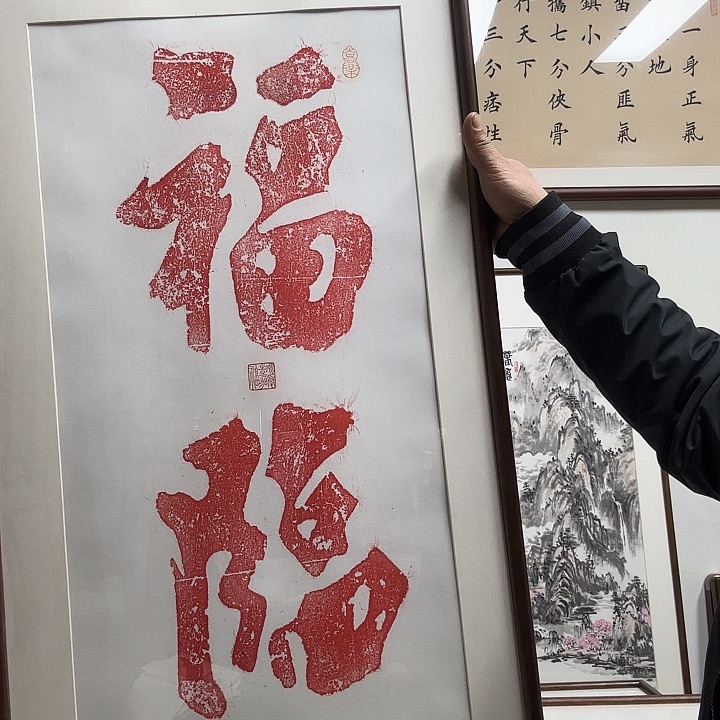 福
臨
一身正氣
地
三分匪氣
鎮小人
攜七分俠骨
行天下
三分痞性